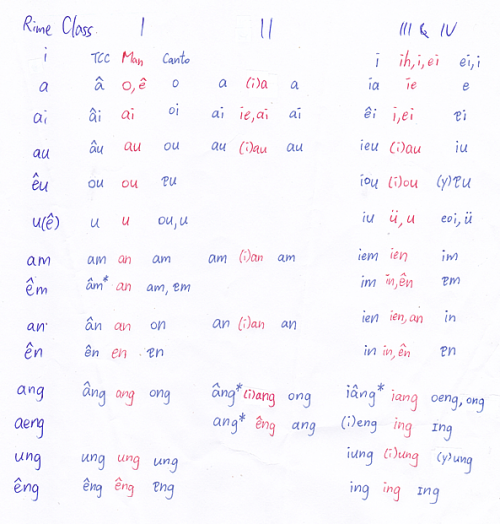 Rime Class I II III & IV
i TCC Man Canto i ih, i, ei ei, i
a â o, ê o a (i)a a ia ie e
ai âi ai oi ai ie, ai ai êi i, ei ɐi
au âu au ou au (i)au au ieu (i)au iu
êu ou ou ɐu iou (i)ou (y)ɐu
u(ê) u u ou, u iu ü, u eoi, ü
am am an am am (i)an am iem ien im
êm âm* an am, ɐm im in, ên ɐm
an ân an on an (i)an an ien ien, an in
ên ên en ɐn in in, ên ɐn
ang âng ang ong âng* (i)ang ong iâng* iang oeng, ong
aeng ang* êng ang (i)eng ing ɪng
ung ung ung ung iung (i)ung (y)ung
êng êng êng ɐng ing ing ɪng